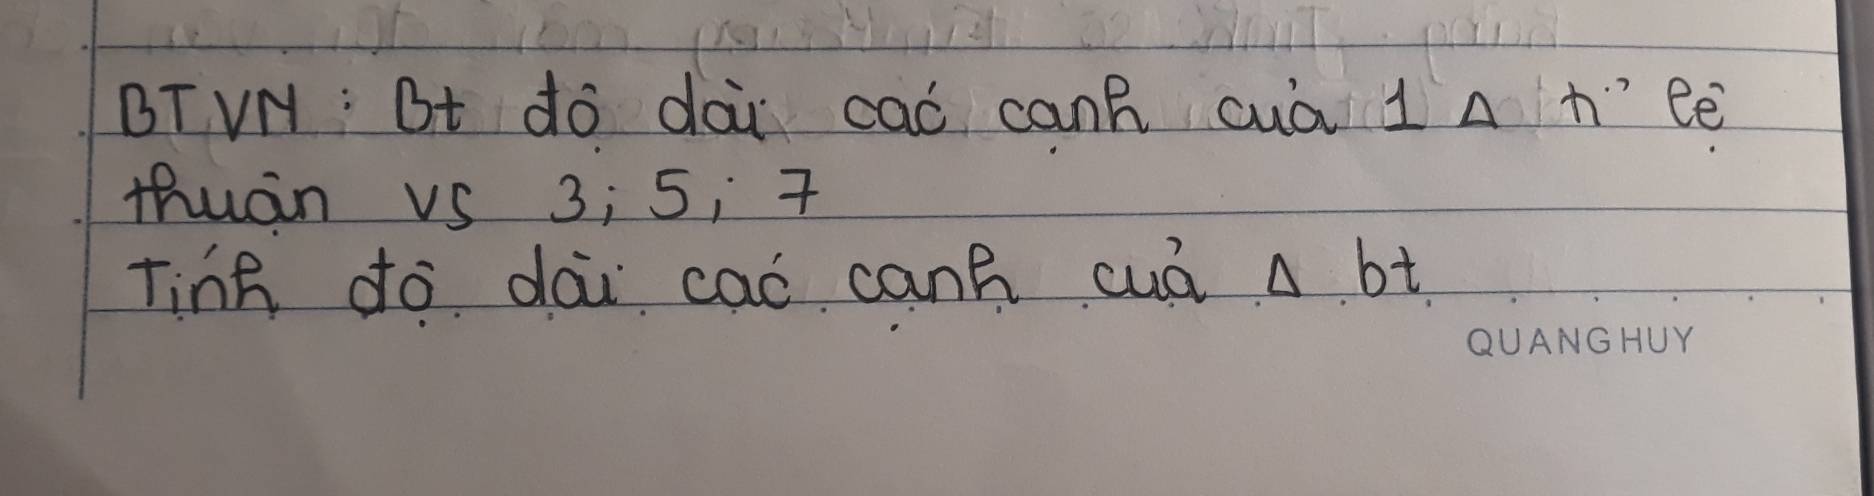 BTVN : Bt độ dài các cạnh của 1 Δ tỉ lệ
thuận vs 3; 5; 7
Tính độ dài các cạnh của Δ bt
QUANG HUY